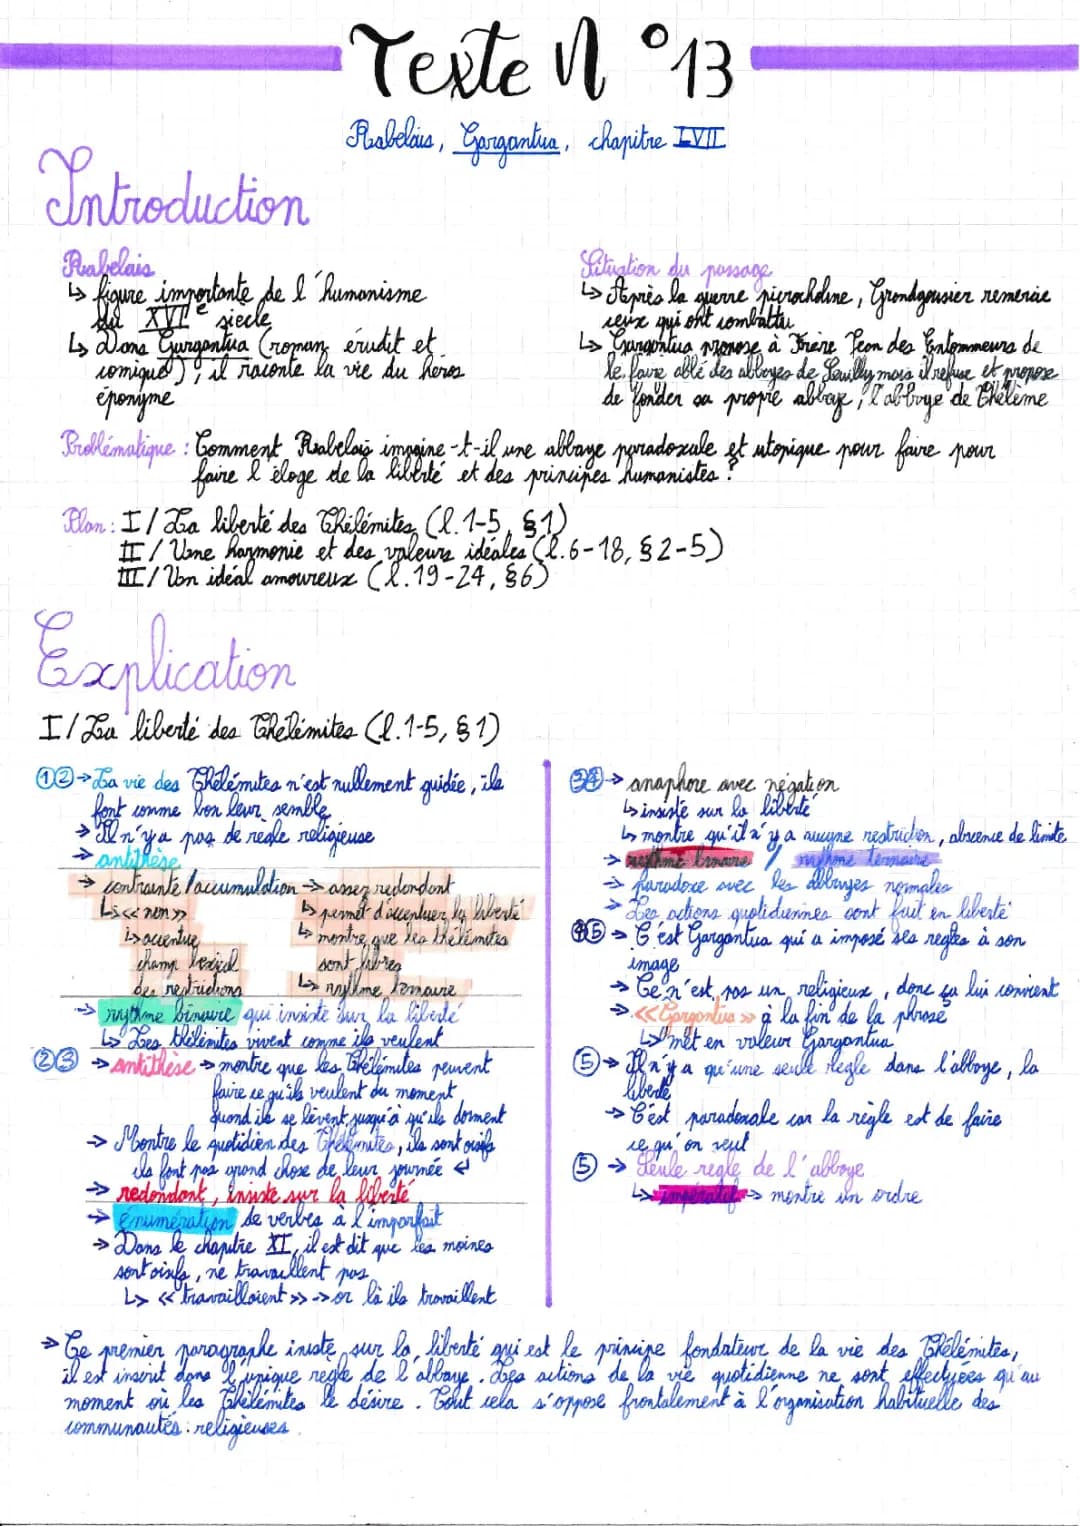 Texte N°13
Rabelais, Gargantua, chapitre LVII
Introduction
Rabelais
↳ figure importante de l'humanisme
du XVIe siecle
↳ Dans Gargantua (roman érudit et
comique), il raconte la vie du heros
éponyme
Situation du passage
↳ Après la guerre picrocholine, Grandgousier remercie
ceux qui ont combattu
↳ Gargantua propose à Frère Jean des Entommeurs de
le faire abbé des abbayes de Seuilly mais il refuse et propose
de fonder sa propre abbaye, l'abbaye de Thélème
Problématique : Comment Rabelais imagine-t-il une abbaye paradoxale et utopique pour faire pour
faire l'éloge de la liberté et des principes humanistes ?
Plan : I/ La liberté des Thélémites (l.1-5, §1)
II/ Une harmonie et des valeurs idéales (l.6-18, §2-5)
III/ Un idéal amoureux (l.19-24, §6)
Explication
I/ La liberté des Thélémites (l.1-5, §1)
①② → La vie des Thélémites n'est nullement guidée, ils
font comme bon leur semble
→ Il n'y a pas de regle religieuse
→ antithèse
→ contrainte / accumulation → assez redondant
↳ « non »
↳ accentue
champ lexical
des restrictions
↳ permet d'accentuer la liberté
↳ montre que les thélémites
sont libres
↳ rythme ternaire
→ rythme binaire qui insiste sur la liberté
↳ Les thélémites vivent comme ils veulent
②③ → antithèse → montre que les Thélémites peuvent
faire ce qu'ils veulent du moment
quand ils se lèvent jusqu'à qu'ils dorment
→ Montre le quotidien des Thélémites, ils sont oisifs
ils font pas grand chose de leur journée
→ redondant, insiste sur la liberté
→ énumération de verbes à l'imparfait
→ Dans le chapitre XI, il est dit que les moines
sont oisifs, ne travaillent pas
↳ « travailloient » → or là ils travaillent
③④ → anaphore avec négation
↳ insiste sur la liberté
↳ montre qu'il n'y a aucune restriction, absence de limite
→ rythme binaire / rythme ternaire
→ paradoxe avec les abbayes normales
→ Les actions quotidiennes sont fait en liberté
④⑤ → C'est Gargantua qui a imposé ses regles à son
image
→ Ce n'est pas un religieux, donc ça lui convient
→ « Gargantua » à la fin de la phrase
↳ met en valeur Gargantua
⑤ → Il n'y a qu'une seule regle dans l'abbaye, la
liberté
→ C'est paradoxale car la règle est de faire
ce qu'on veut
⑤ → Seule regle de l'abbaye
↳ impératif → montre un ordre
→ Ce premier paragraphe insiste sur la liberté qui est le principe fondateur de la vie des Thélémites,
il est inscrit dans l'unique regle de l'abbaye. Les actions de la vie quotidienne ne sont effectuées qu'au
moment où les Thélémites le désire. Tout cela s'oppose frontalement à l'organisation habituelle des
communautés religieuses.